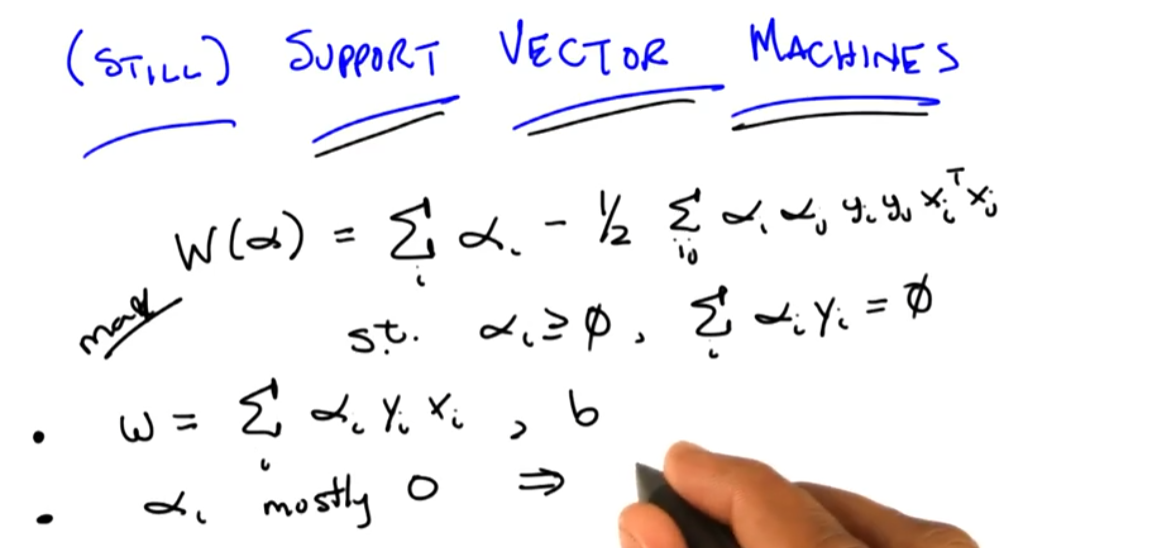 (STILL) SUPPORT VECTOR MACHINES
W(α) = Σ_i α_i - 1/2 Σ_ij α_i α_j y_i y_j x_i^T x_j
max
s.t. α_i ≥ ∅, Σ_i α_i y_i = ∅
• w = Σ_i α_i y_i x_i , b
• α_i mostly 0 ⇒